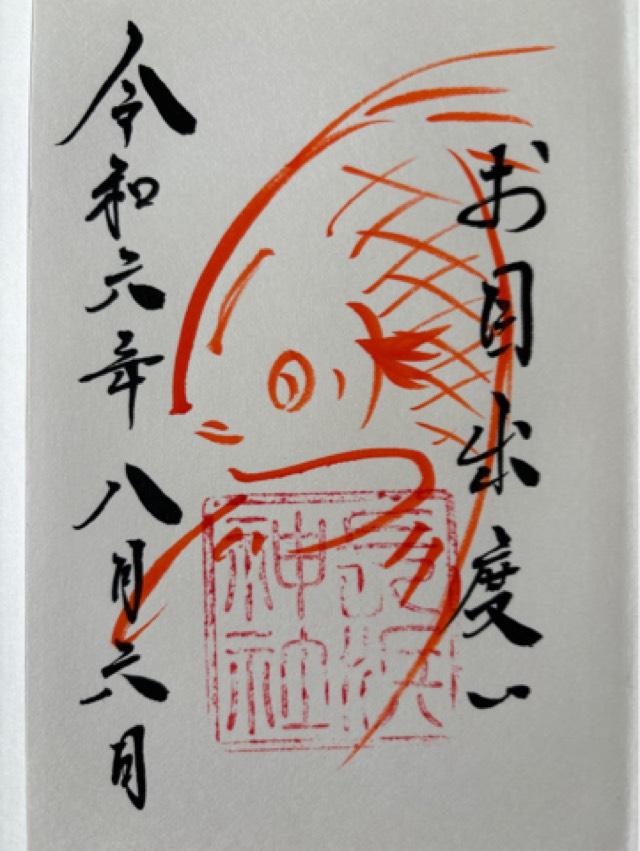 お目出度い
長浜
神社
令和六年八月六日